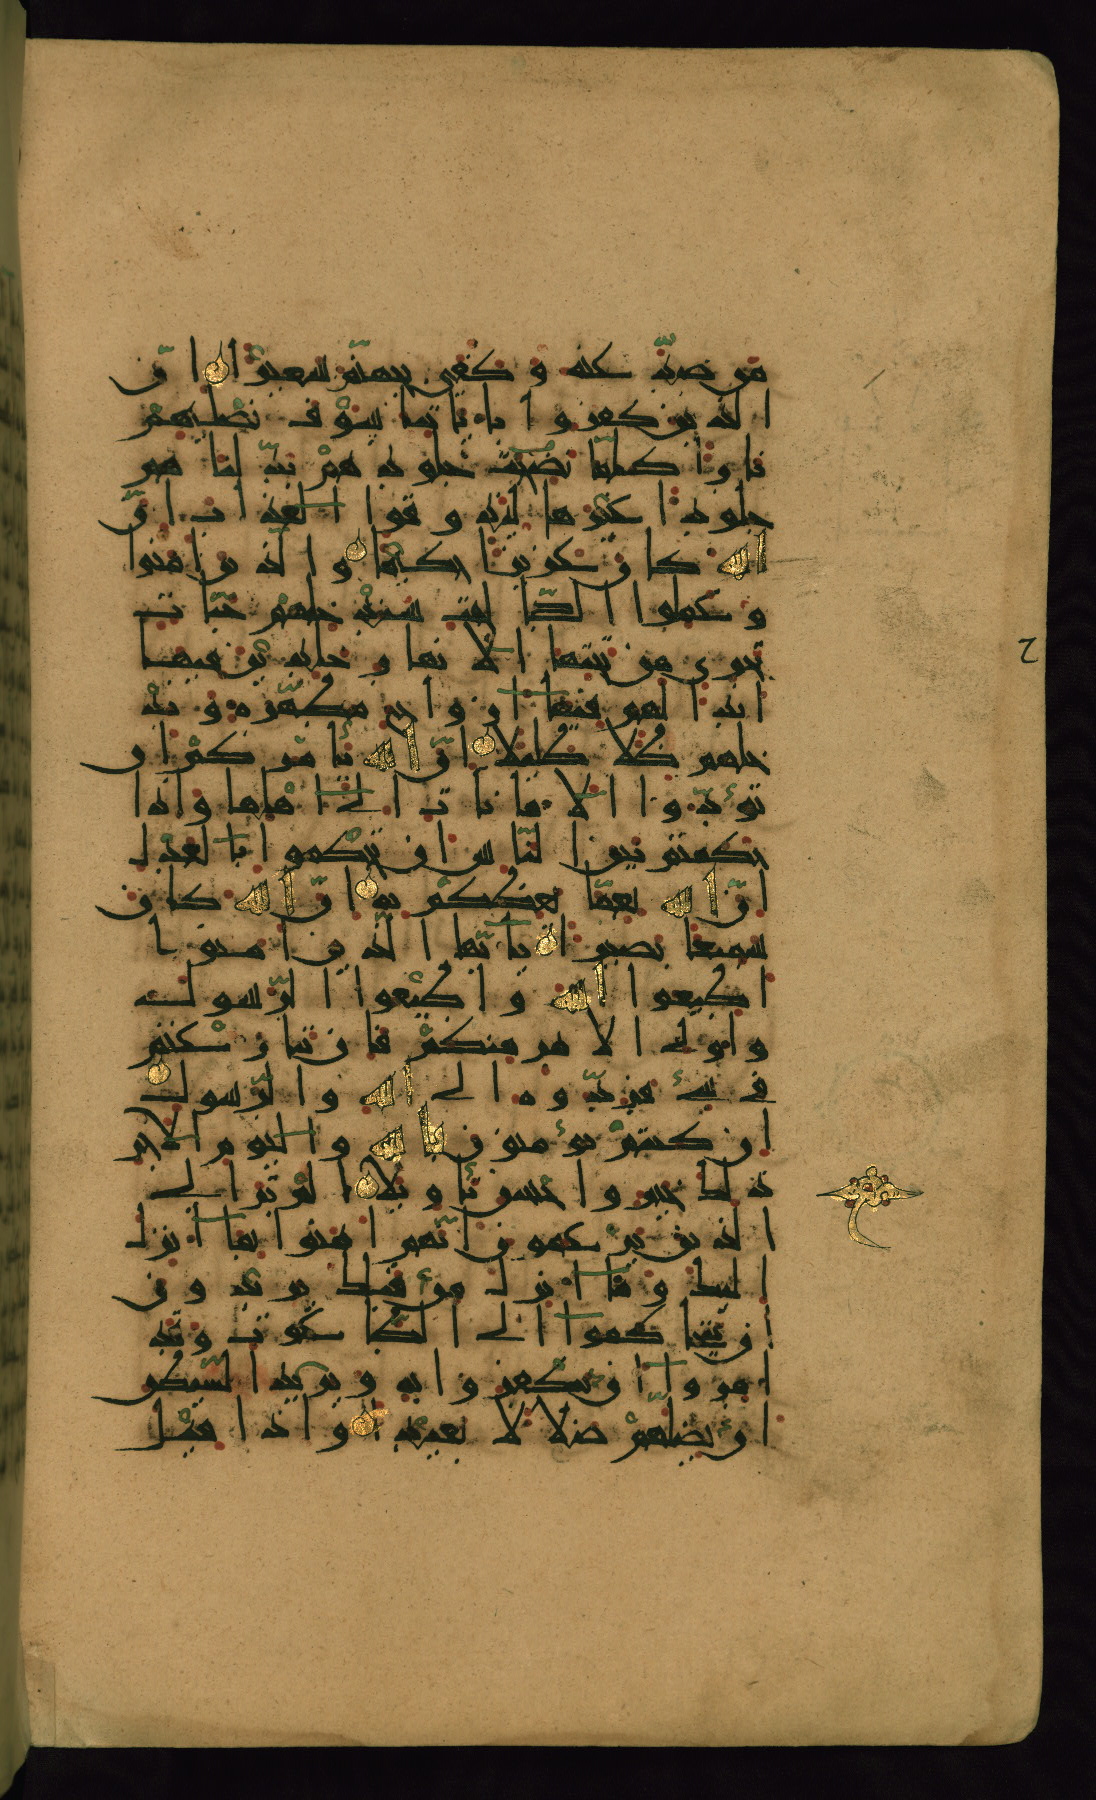 من صد عنه وكفى بجهنم سعيرا ان
الذين كفروا باياتنا سوف نصليهم
نارا كلما نضجت جلودهم بدلنا هم
جلودا غيرها ليذوقوا العذاب ان
الله كان عزيزا حكيما والذين امنوا
وعملوا الصالحات سندخلهم جنات
تجري من تحتها الانهار خالدين فيها
ابدا لهم فيها ازواج مطهرة وند
خلهم ظلا ظليلا ان الله يامركم ان
تؤدوا الامانات الى اهلها واذا
حكمتم بين الناس ان تحكموا بالعدل
ان الله نعما يعظكم به ان الله كان
سميعا بصيرا يايها الذين امنوا
اطيعوا الله واطيعوا الرسول
واولي الامر منكم فان تنازعتم
في شيء فردوه الى الله والرسول
ان كنتم تؤمنون بالله واليوم الاخر
ذلك خير واحسن تاويلا الم تر الى
الذين يزعمون انهم امنوا بما انزل
اليك وما انزل من قبلك يريدون
ان يتحاكموا الى الطاغوت وقد
امروا ان يكفروا به ويريد الشيطن
ان يضلهم ضلالا بعيدا واذا قيل